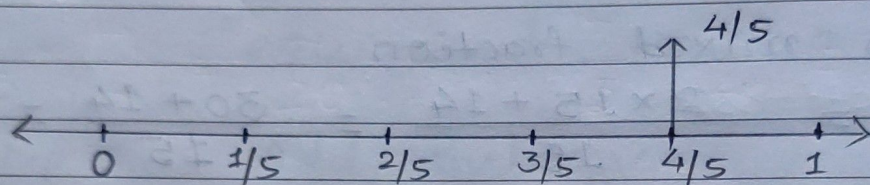 4/5
0 1/5 2/5 3/5 4/5 1